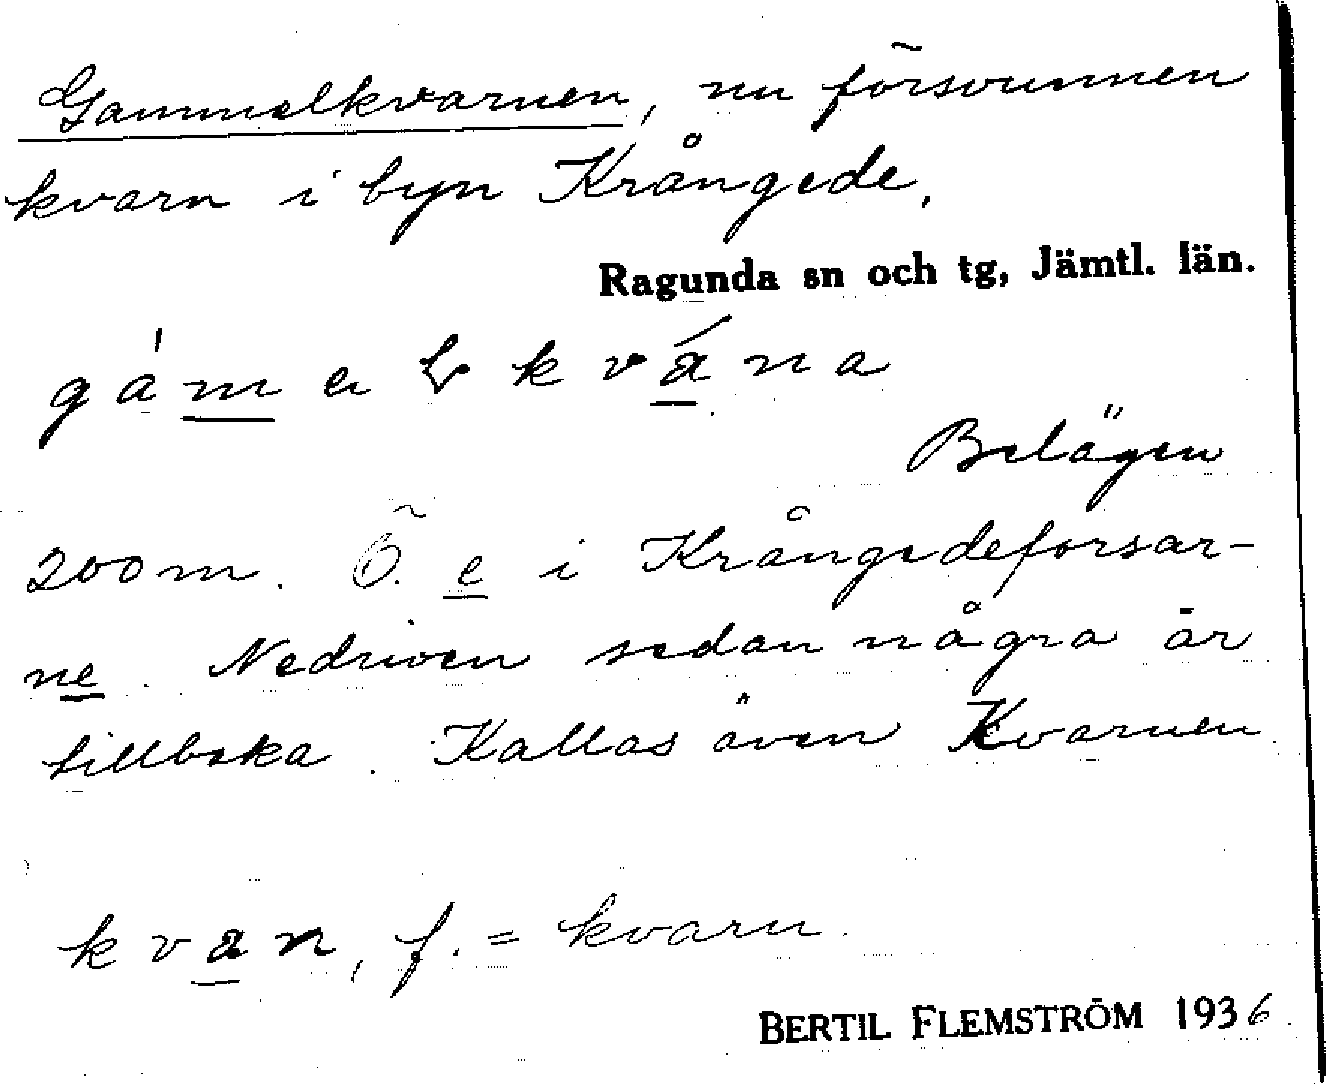 Gammelkvarnen, nu försvunnen
kvarn i byn Krångede.
Ragunda sn och tg, Jämtl. län.
kvána
Belägen
200 m. Ö. e i Krångedeforsar-
ne. Nedriven sedan några år
tillbaka. Kallas även Kvarnen
kvan, f. = kvarn.
BERTIL FLEMSTRÖM 1936